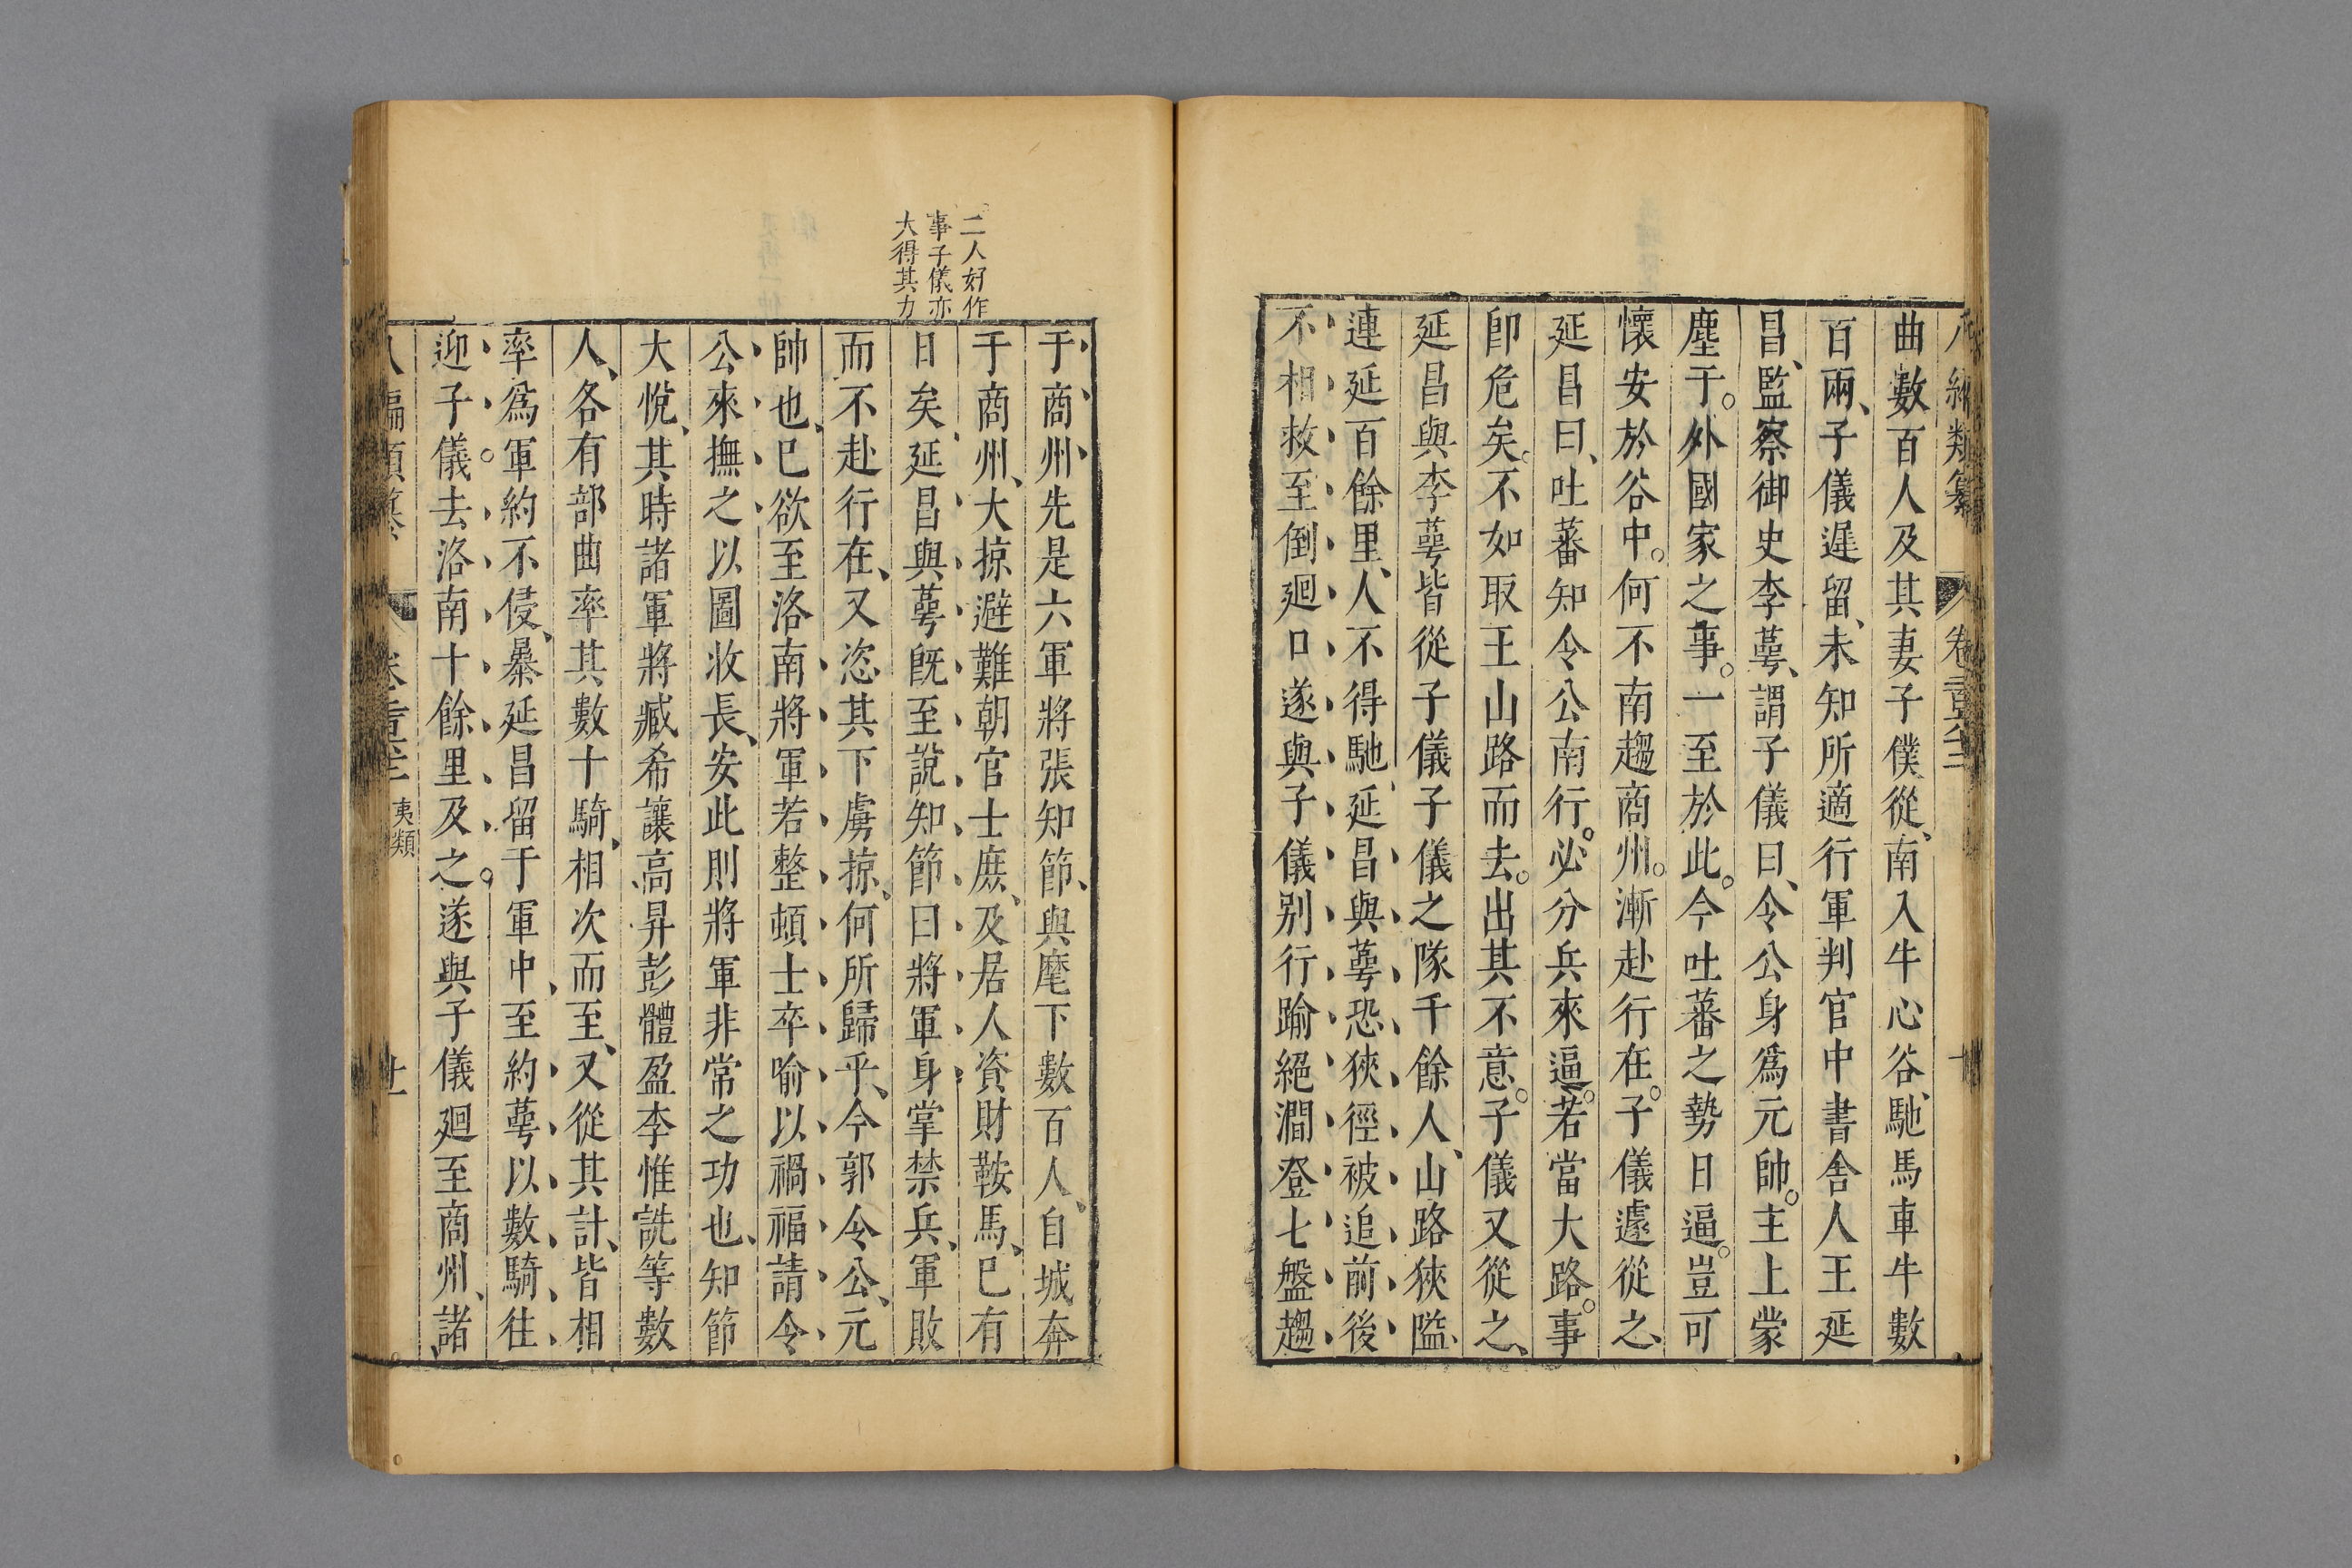 曲數百人及其妻子僕從、南入牛心谷、馳馬車牛數
百兩、子儀遲留、未知所適行軍判官中書舍人王延
昌、監察御史李萼、謂子儀曰、令公身爲元帥。主上蒙
塵于。外國家之事。一至於此。今吐蕃之勢日逼。豈可
懷安於谷中。何不南趨商州。漸赴行在。子儀遽從之、
延昌曰、吐蕃知令公南行。必分兵來逼。若當大路。事
卽危矣。不如取王山路而去。出其不意。子儀又從之、
延昌與李萼皆從子儀子儀之隊千餘人、山路狹隘、
連延百餘里、人不得馳、延昌與萼恐狹徑被追前後
不相救至倒廻口遂與子儀别行踰絕澗登七盤趨
二人好作
事子儀亦
大得其力
于商州先是六軍將張知節、與麾下數百人、自城奔
于商州、大掠避難朝官士庶、及居人資財鞍馬、已有
日矣、延昌與萼旣至說知節曰將軍身掌禁兵、軍敗
而不赴行在、又恣其下虜掠、何所歸乎、今郭令公、元
帥也、已欲至洛南將軍若整頓士卒喻以禍福請令
公來撫之以圖收長、安此則將軍非常之功也、知節
大悅、其時諸軍將臧希讓高昇彭體盈李惟詵等數
人、各有部曲率其數十騎、相次而至、又從其計、皆相
率爲軍約不侵、暴延昌留于軍中、至約萼以數騎往
迎子儀。去洛南十餘里及之。遂與子儀廻至商州、諸
夷類